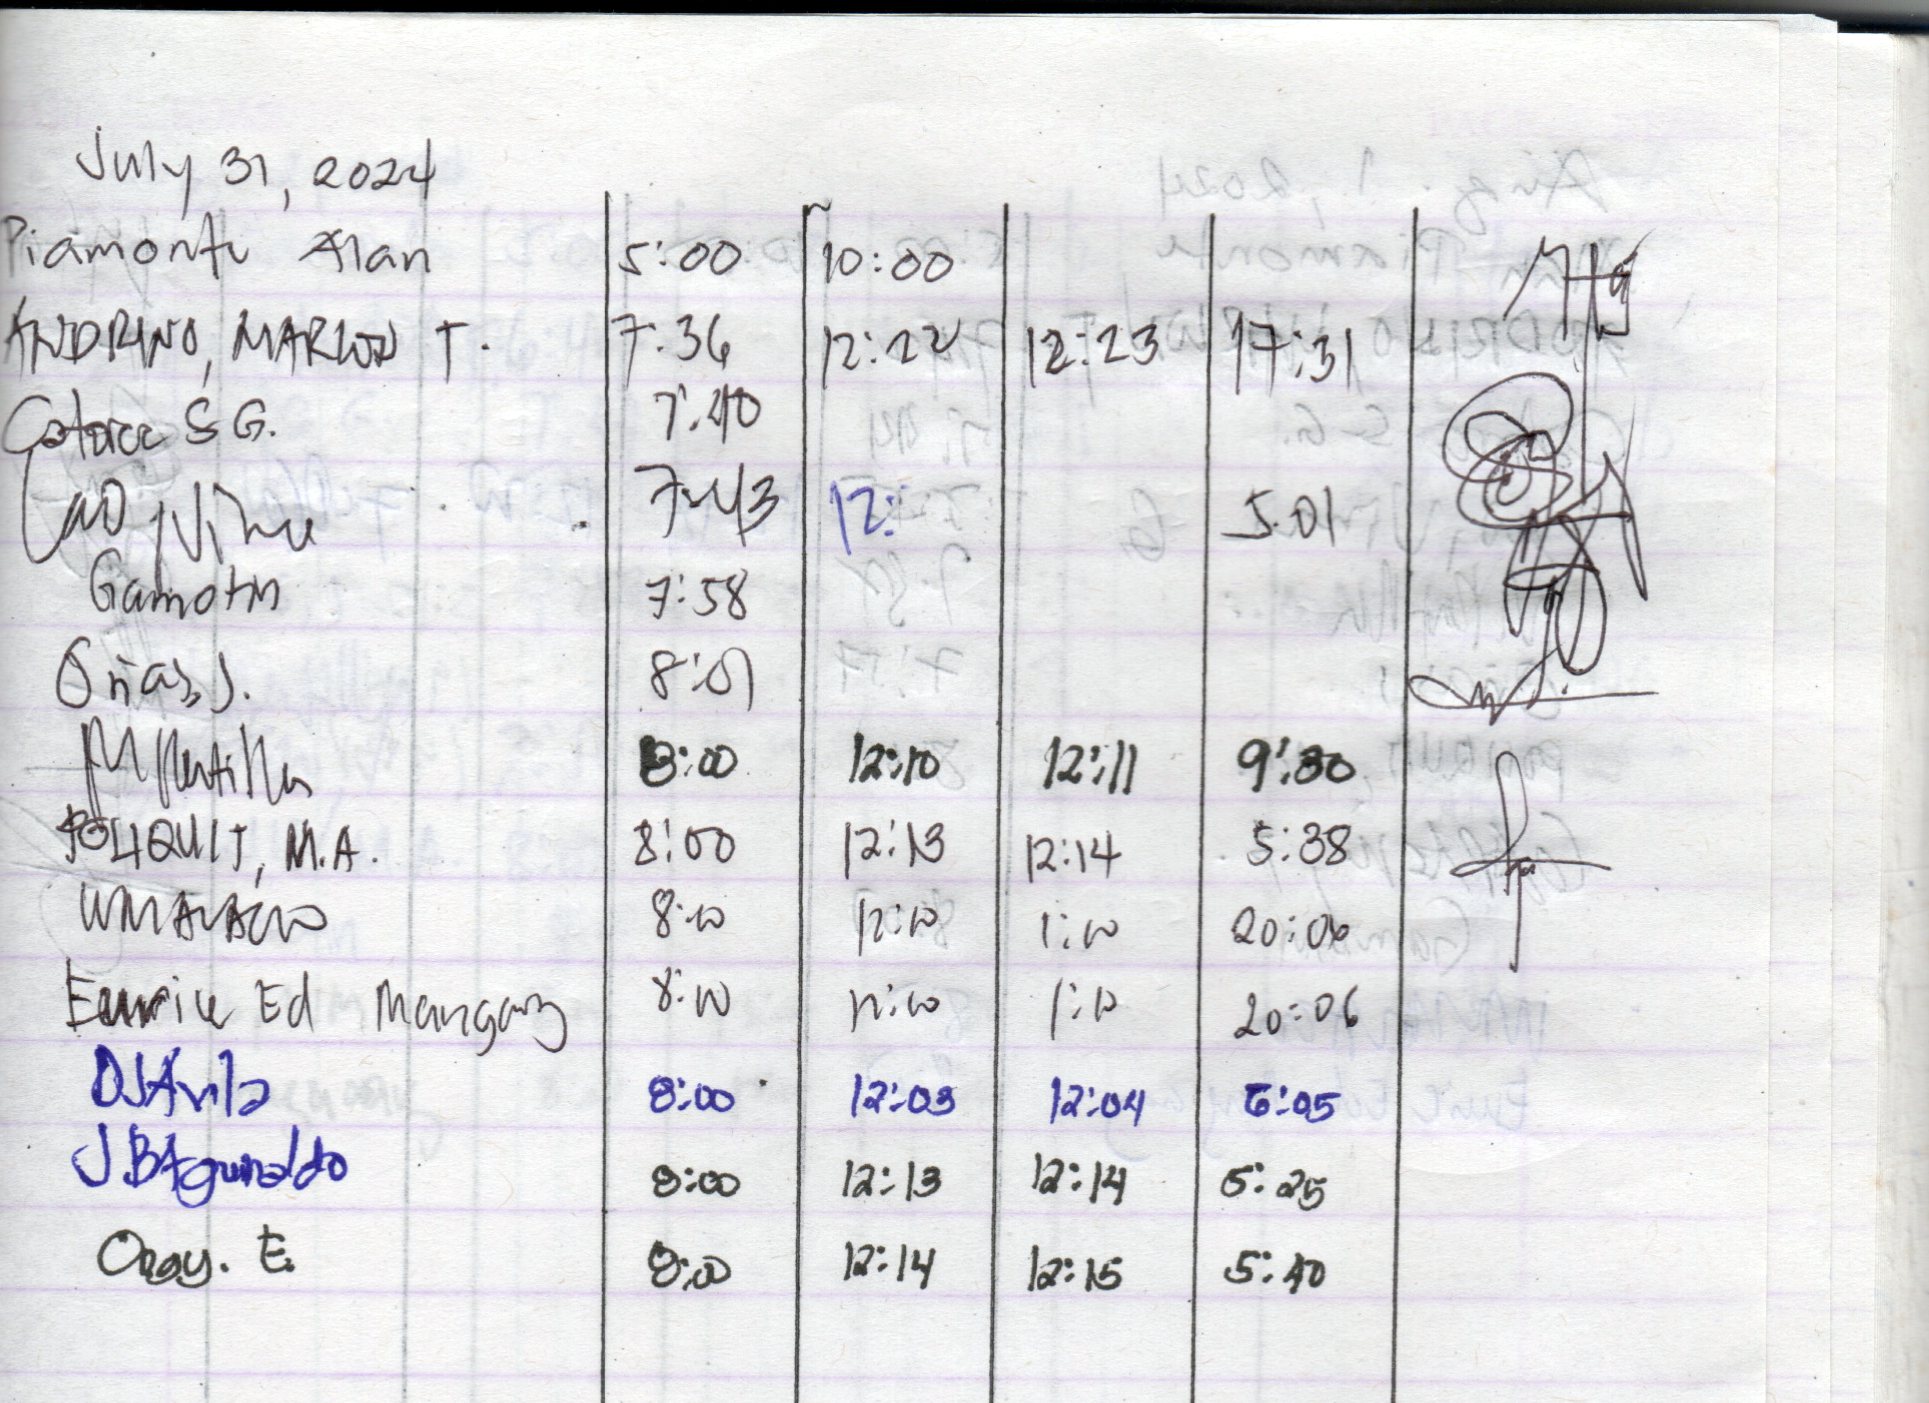 July 31, 2024
Piamonte Alan 5:00 10:00
ANDRINO, MARLON T. 7:36 12:22 12:23 17:31
S G. 7:40
7:43 12: 5:01
7:58
Oñas, J. 8:01
8:00 12:10 12:11 9:30
POLIQUIT, M.A. 8:00 12:13 12:14 5:38
8:10 12:10 1:10 20:06
Eunice Ed 8:10 12:10 1:10 20:06
DJAvila 8:00 12:03 12:04 6:05
J.BAguinaldo 8:00 12:13 12:14 5:25
E. 8:00 12:14 12:15 5:40